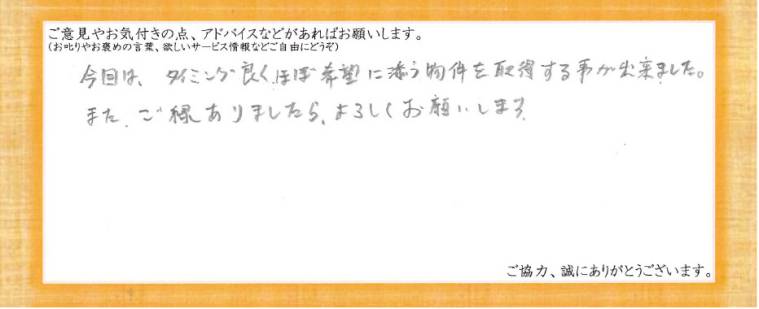 ご意見やお気付きの点、アドバイスなどがあればお願いします。
(お叱りやお褒めの言葉、欲しいサービス情報などご自由にどうぞ)
今回は、タイミング良くほぼ希望に添う物件を取得する事が出来ました。
また、ご縁ありましたら、よろしくお願いします
ご協力、誠にありがとうございます。